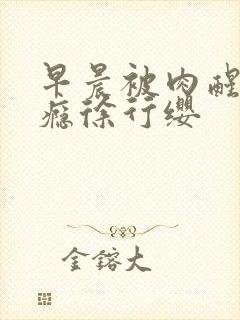 早晨被肉醒
瘾徐行缨
金镕大